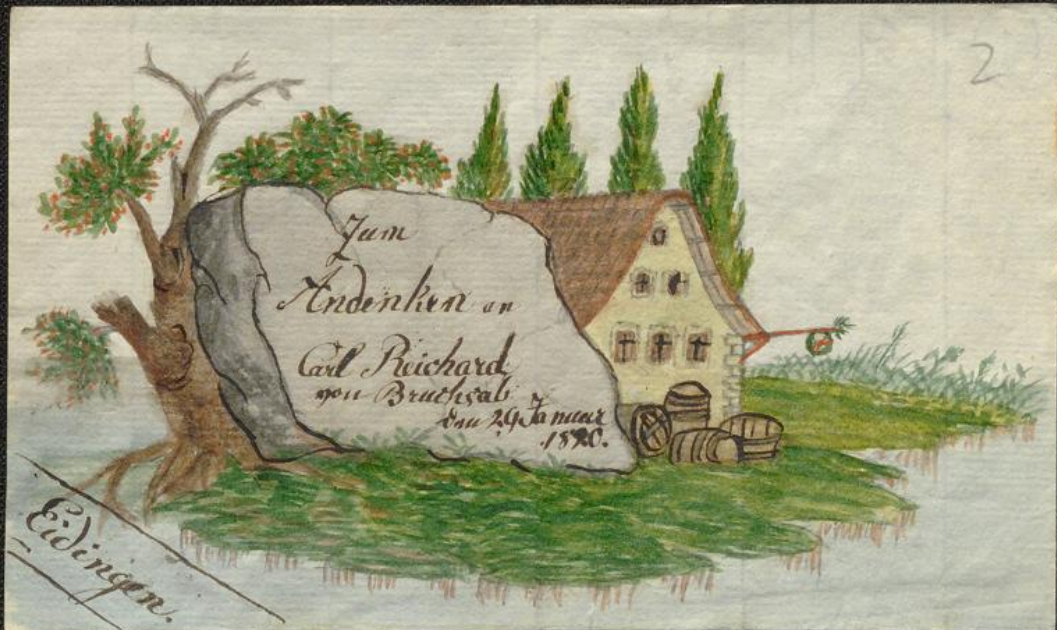 2
Zum
Andenken an
Carl Reichard
von Bruchsal
den 29 Januar
Eidingen.